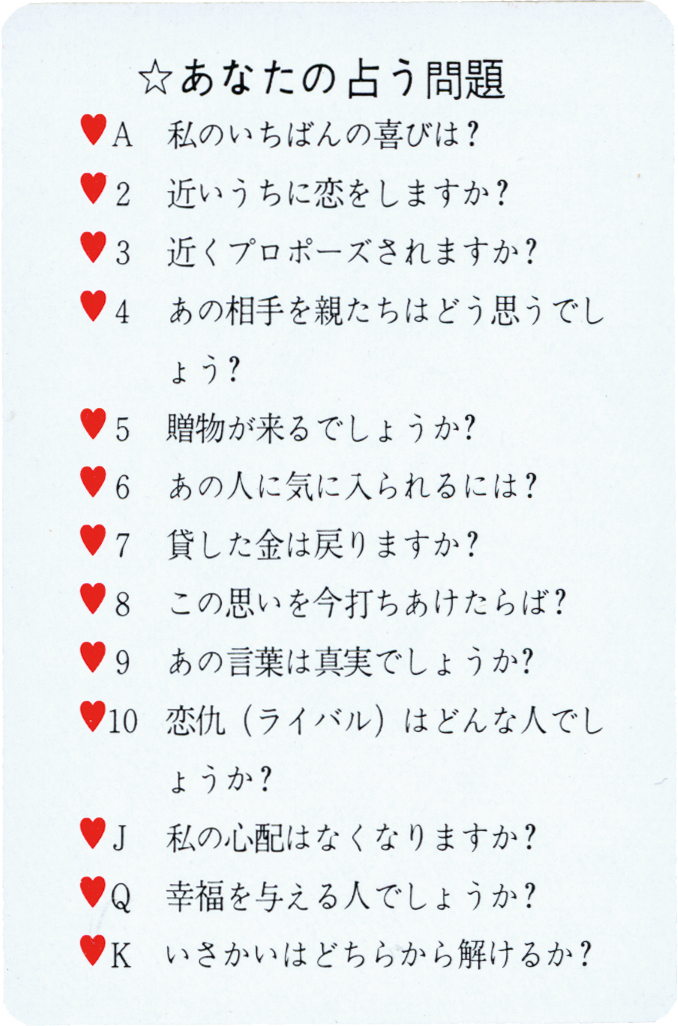 ☆あなたの占う問題
♥A 私のいちばんの喜びは?
♥2 近いうちに恋をしますか?
♥3 近くプロポーズされますか?
♥4 あの相手を親たちはどう思うでし
ょう?
♥5 贈物が来るでしょうか?
♥6 あの人に気に入られるには?
♥7 貸した金は戻りますか?
♥8 この思いを今打ちあけたらば?
♥9 あの言葉は真実でしょうか?
♥10 恋仇（ライバル）はどんな人でし
ょうか?
♥J 私の心配はなくなりますか?
♥Q 幸福を与える人でしょうか?
♥K いさかいはどちらから解けるか?